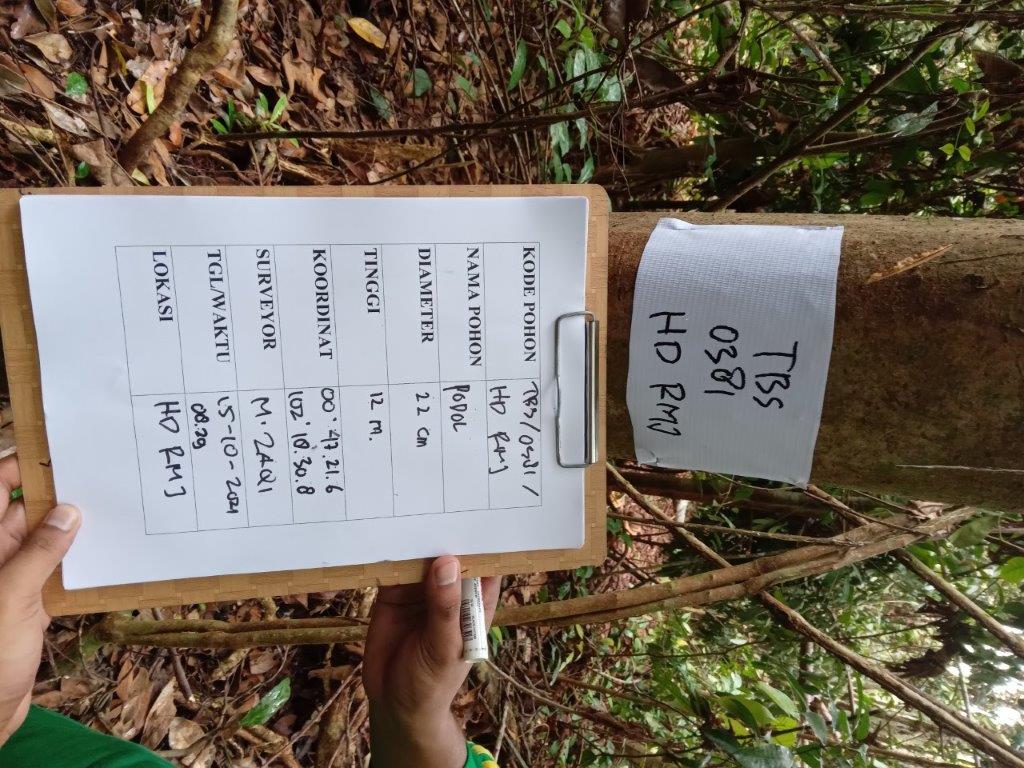 TBS
0381
HD RMJ
KODE POHON TBS/0381/
HD RMJ
NAMA POHON PODOL
DIAMETER 22 cm
TINGGI 12 M.
KOORDINAT 00°47.21.6
102°18.30.8
SURVEYOR M. ZAQI
TGL/WAKTU 15-10-2021
08.29
LOKASI HD RMJ